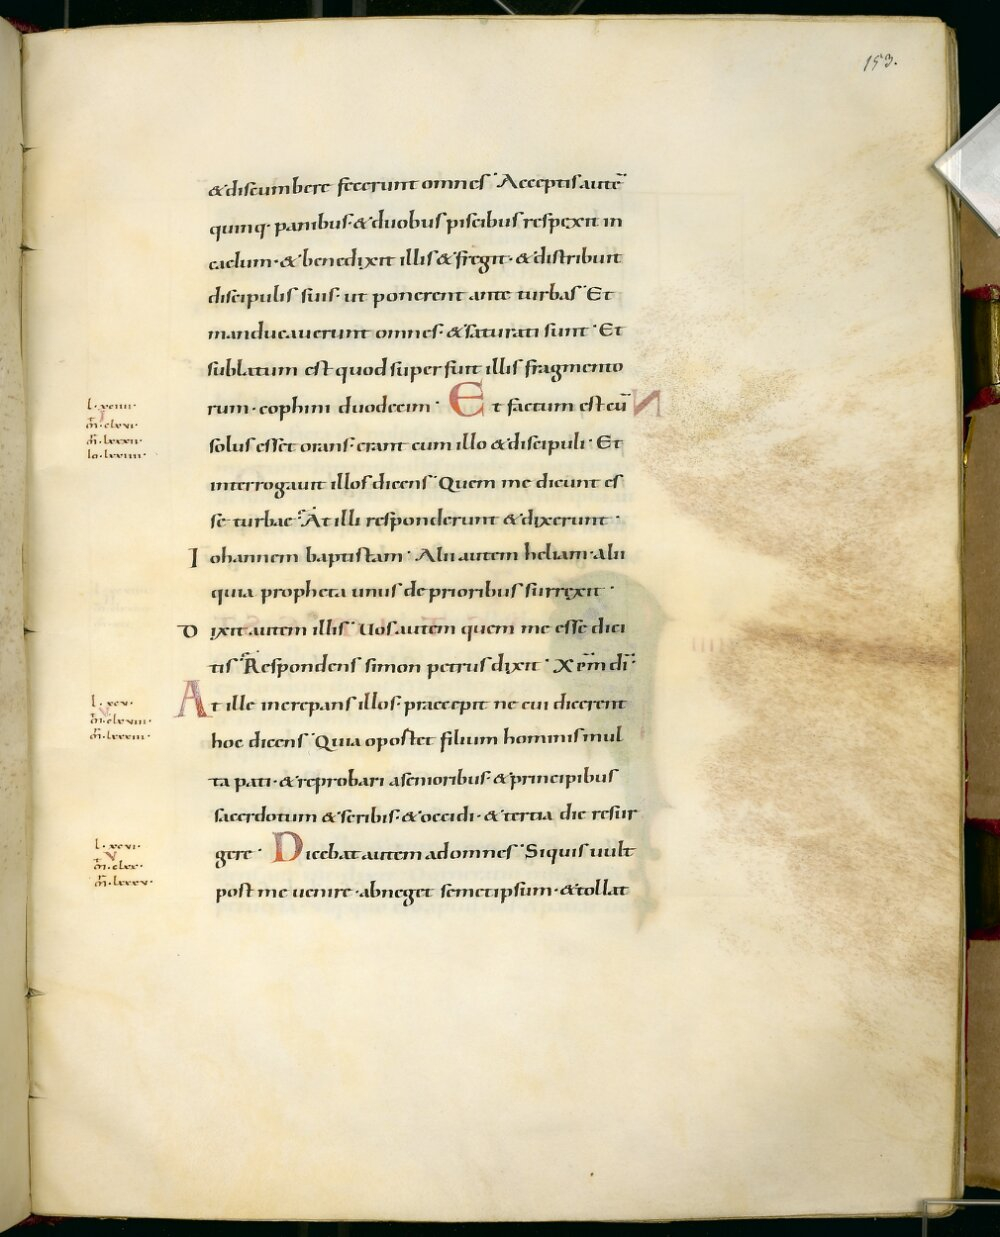 153.
& discumbere fecerunt omnes· Acceptis autē
quinq· panibus· & duobus piscibus respexit in
caelum· & benedixit illis & fregit· & distribuit
discipulis suis· ut ponerent ante turbas· Et
manducauerunt omnes· & saturati sunt· Et
sublatum est quod superfuit illis fragmento
rum· cophini duodecim· Et factum est cū
solus esset orans· erant cum illo & discipuli· Et
interrogauit illos dicens· Quem me dicunt es
se turbae· At illi responderunt & dixerunt·
Iohannem baptistam· Alii autem heliam· alii
quia propheta unus de prioribus surrexit·
Dixit autem illis· Uos autem quem me esse dici
tis· Respondens simon petrus dixit· Xp̄m dī·
At ille increpans illos· praecepit ne cui dicerent
hoc dicens· Quia oportet filium hominis mul
ta pati· & reprobari a senioribus· & principibus
sacerdotum & scribis· & occidi· & tertia die resur
gere· Dicebat autem ad omnes· Si quis uult
post me uenire· abneget semetipsum· & tollat
l·xciiii·
l·xcv·
l·xcvi·